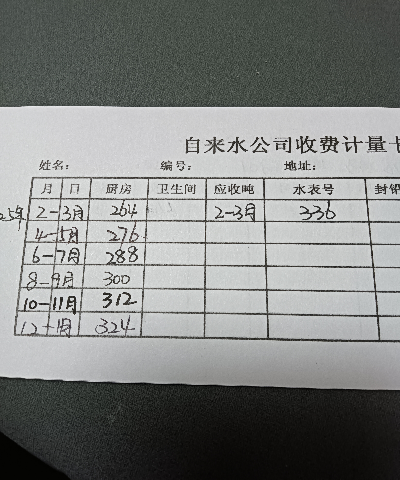 自来水公司收费计量卡
姓名： 编号： 地址：
月 日 厨房 卫生间 应收吨 水表号 封铅
25年 2-3月 264 2-3月 336
4-5月 276
6-7月 288
8-9月 300
10-11月 312
12-1月 324